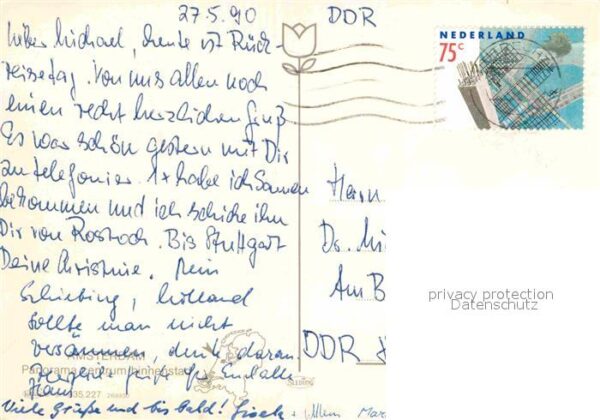 27.5.90
DDR
NEDERLAND
75c
Lieber Michael, heute ist Rück-
reisetag. Von uns allen noch
einen recht herzlichen Gruß
Es war schön gestern mit Dir
zu telefonier. 1x habe ich Samen
bekommen und ich schicke ihn
Dir von Rostock. Bis Stuttgart
Deine Christine. Mein
, Holland
sollte man nicht
versäumen, denk daran.
Herzliche
Viele Grüße und bis bald! Gisela +
Herrn
Dr. Mi
Am B
DDR
AMSTERDAM
Panorama centrum binnenstad
privacy protection
Datenschutz